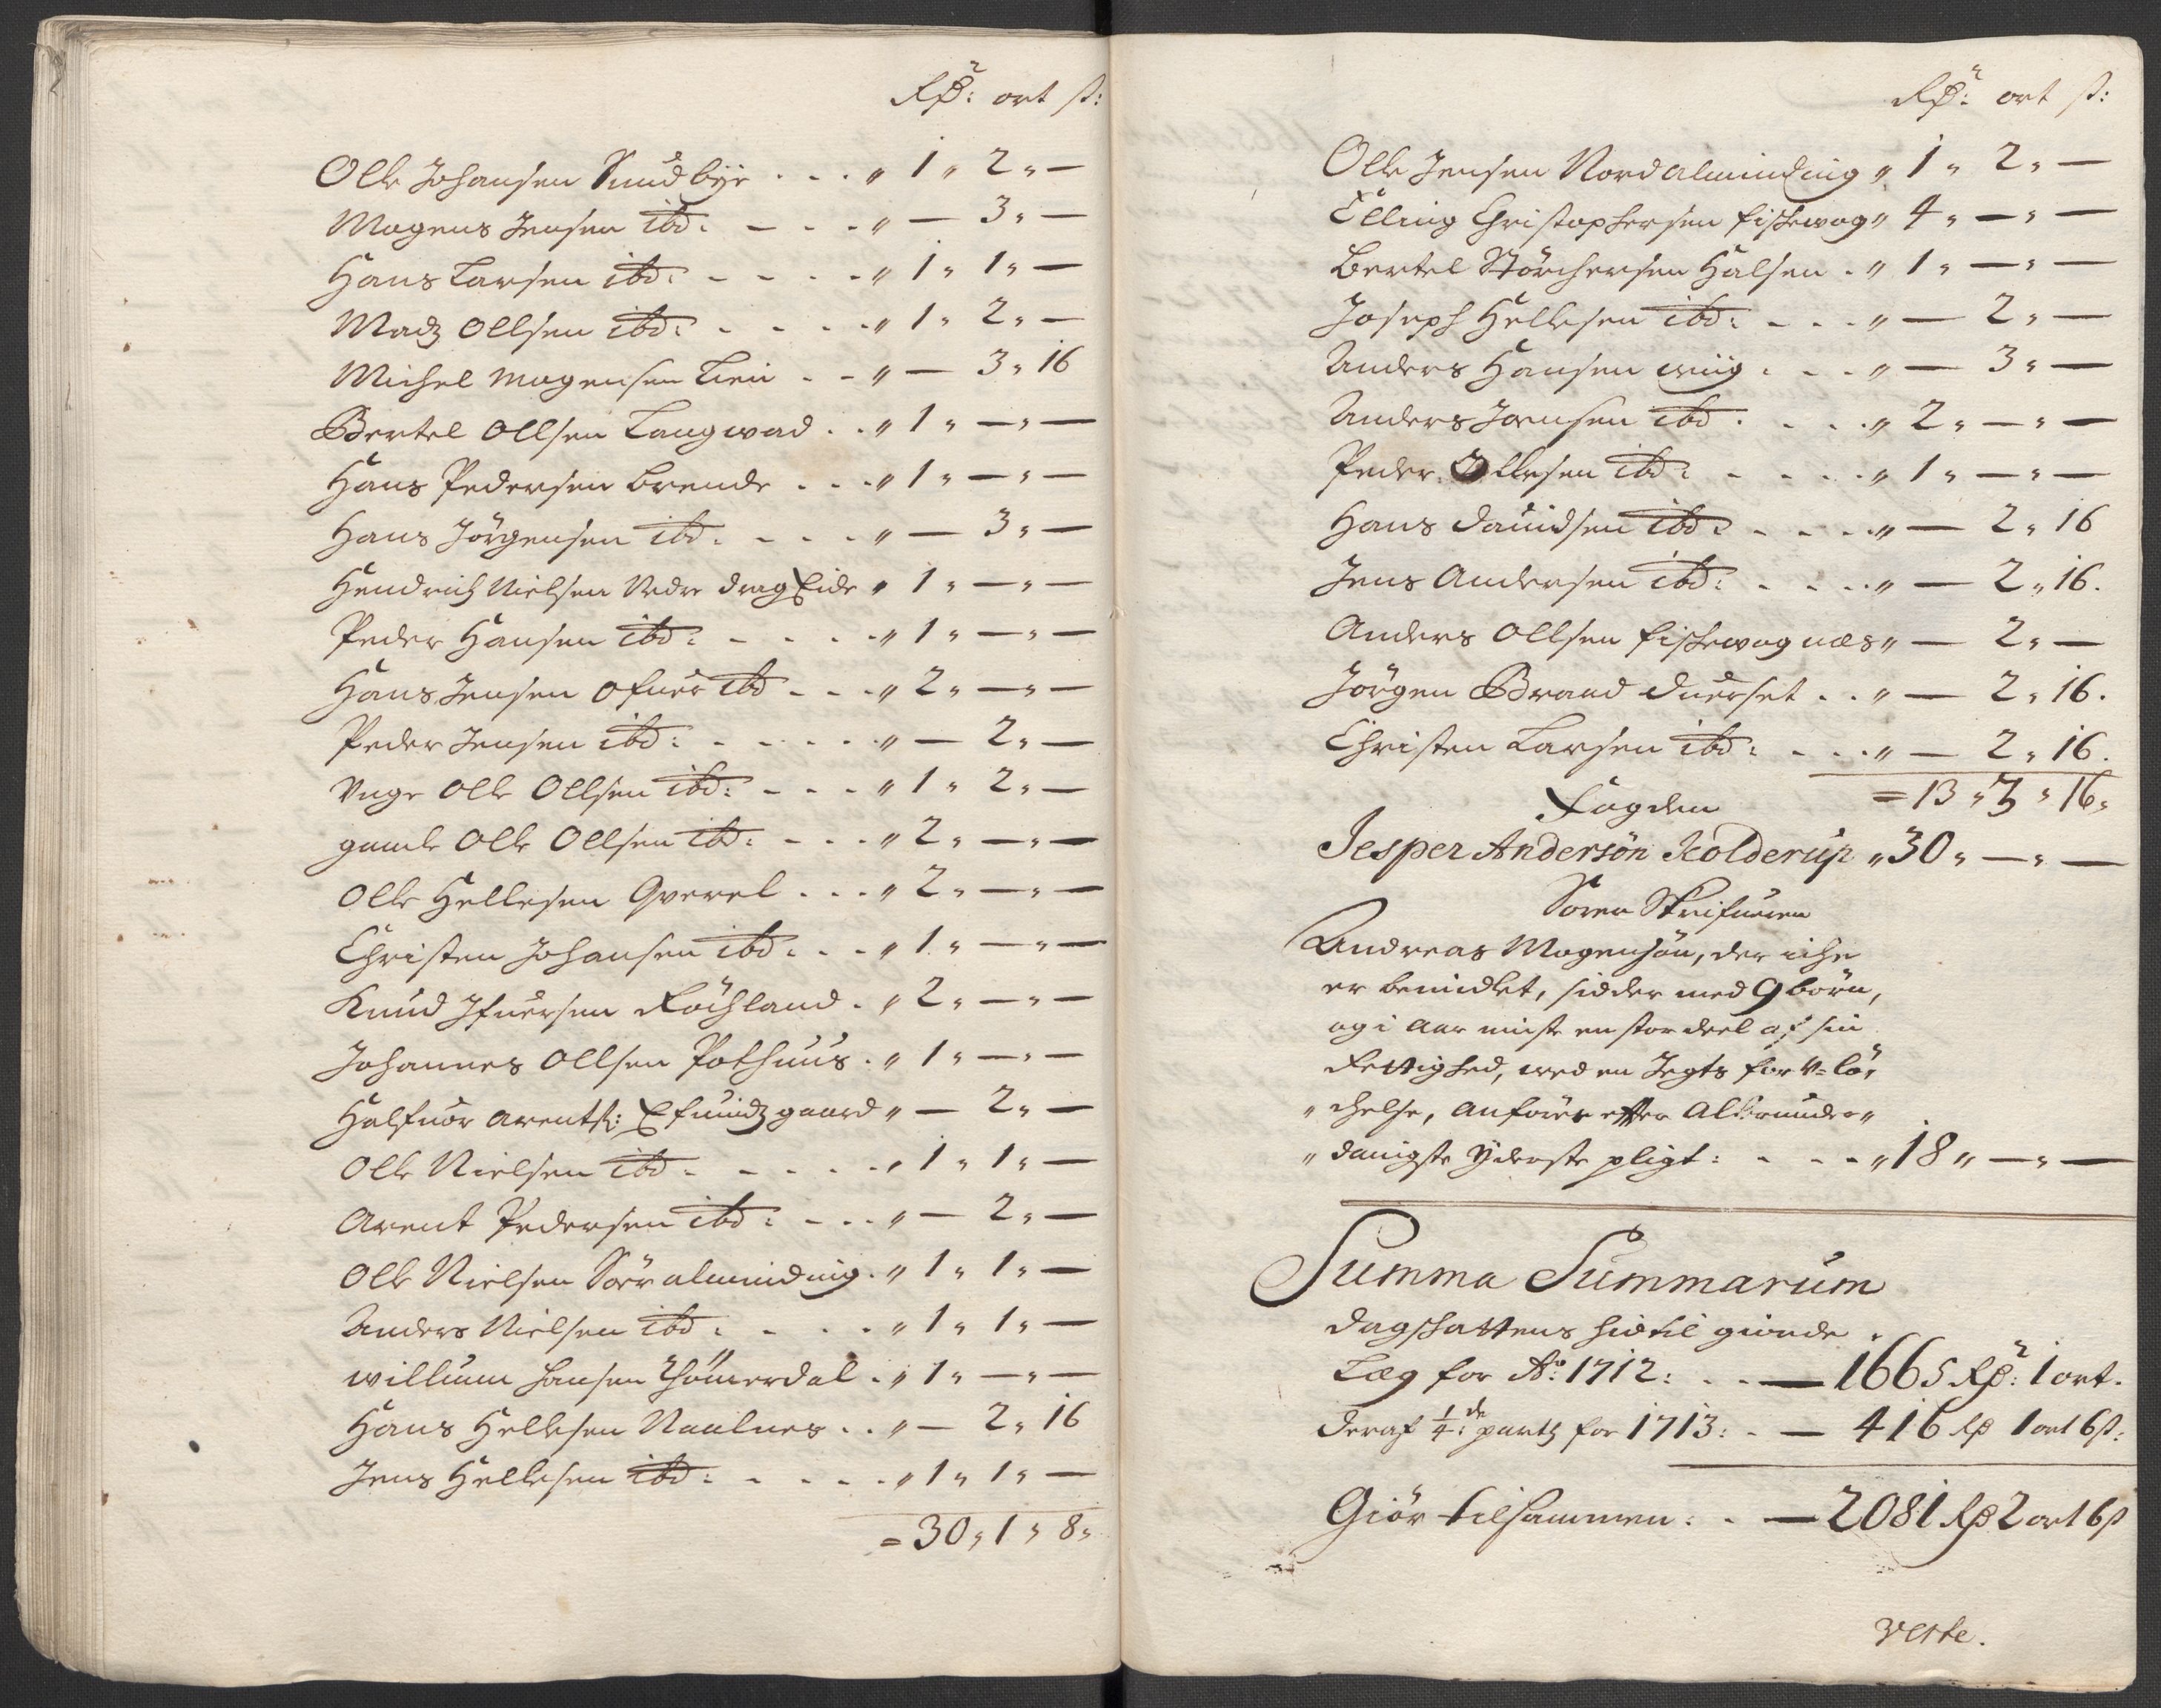 Rdr: ort ß:
Olle Johansen Sundbye . . . „ 1 „ 2 „ —
Mogens Jensen ibd: — - - „ — 3 „ —
Hans Larsen ibd: - - - - „ 1 „ 1 „ —
Madz Ollsen ibd: - - - - „ 1 „ 2 „ —
Michel Mogensen Lien . - „ — 3 „ 16
Bertel Ollsen Langwad . . „ 1 „ — „ —
Hans Pedersen Brende . . . „ 1 „ — „ —
Hans Jörgensen ibd: - - - „ — 3 „ —
Hendrich Nielsen Nedre dragEide „ 1 „ — „ —
Peder Hansen ibd: - - - - „ 1 „ — „ —
Hans Jensen ofuer ibd - - - „ 2 „ — „ —
Peder Jensen ibd: - - - - - „ — 2 „ —
Unge Olle Ollsen ibd: - - - „ 1 „ 2 „ —
gamle Olle Ollsen ibd: - - - „ 2 „ — „ —
Olle Hellesen Qverel . . . „ 2 „ — „ —
Christen Johansen ibd: . . „ 1 „ — „ —
Knud Ifuersen Röchland . „ 2 „ — „ —
Johannes Ollsen Pothuus . „ 1 „ — „ —
Halfuor arentß: Efuindzgaard „ — 2 „ —
Olle Nielsen ibd: - - - - „ 1 „ 1 „ —
Arent Pedersen ibd: - - - „ — 2 „ —
Olle Nielsen Sör almindning . „ 1 „ 1 „ —
Anders Nielsen ibd: - - - „ 1 „ 1 „ —
willum hansen Thömerdal . „ 1 „ — „ —
Hans Hellesen Naalnes . . „ — 2 „ 16
Jens Hellesen ibd: - - - - „ 1 „ 1 „ —
= 30 „ 1 „ 8 „
Rdr: ort ß:
Olle Jensen Nordalminding „ 1 „ 2 „ —
Elling Christophersen fiskewog „ 4 „ — „ —
Bertel Störchersen Halsen . „ 1 „ — „ —
Joseph Hellesen ibd: - - - „ — 2 „ —
Anders Hansen wiig . - - „ — 3 „ —
Anders Jensen ibd . - - - „ 2 „ — „ —
Peder Ollesen ibd: - - - - „ 1 „ — „ —
Hans Dauidsen ibd: - - - „ — 2 „ 16
Jens Andersen ibd: - - - „ — 2 „ 16.
Anders Ollsen fiskewog næs „ — 2 „ —
Jörgen Brand duerset . . „ — 2 „ 16.
Christen Larsen ibd: - - - „ — 2 „ 16.
= 13 „ 3 „ 16 „
Fogden
Jesper Andersön Kolderup „ 30 „ — „ —
Soren Skrifueren
Andreas Mogensön, der iche
er bemidlet, sidder med 9 börn,
og i Aar miste en stor deel af sin
fettighed, wed en Jegts for U= lö,
„ chelse, anförer efter Allerunder „
„ danigste yderste pligt: - - - „ 18 „ — „ —
Summa Summarum
dagskattens hidtil giorde
Læg for Ao: 1712: . . — 1665 Rdr: 1 ort.
deraf 1/4: de partz for 1713: . — 416 Rd 1 ort 6 ß:
Giör tilsammen: . — 2081 Rd 2 ort 6 ß
Reste.